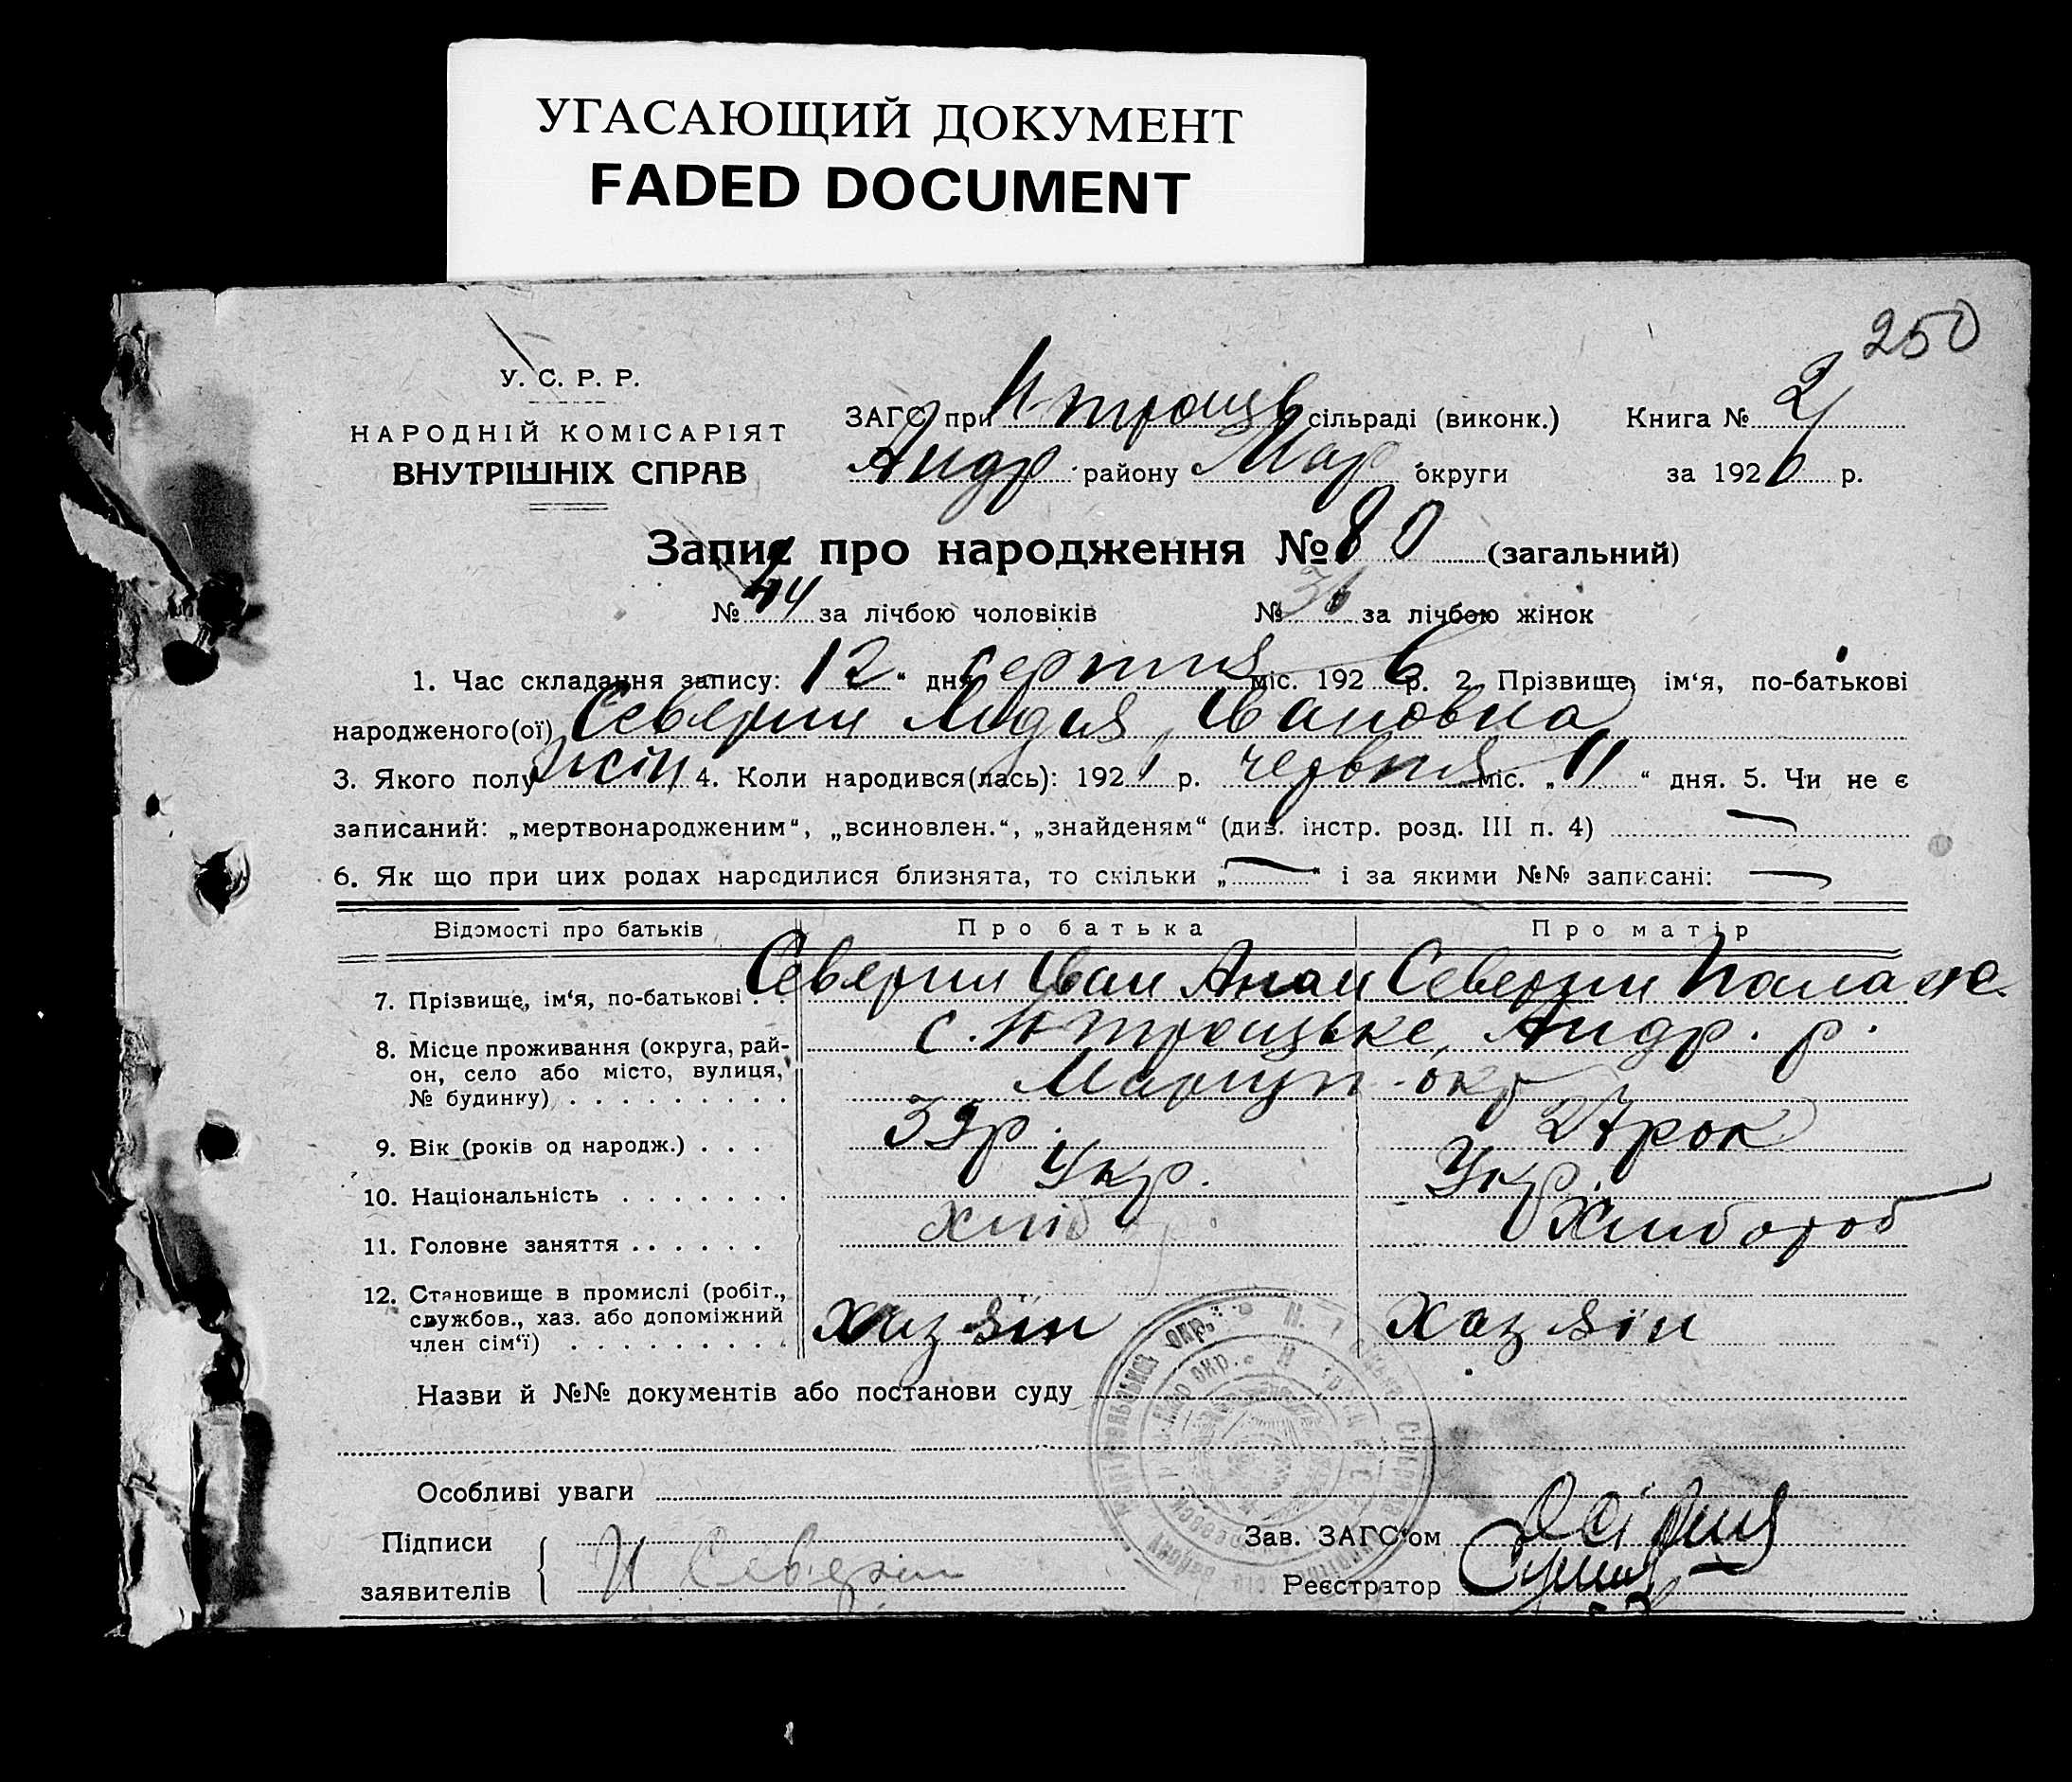 УГАСАЮЩИЙ ДОКУМЕНТ
FADED DOCUMENT
250
У. С. Р. Р.
НАРОДНІЙ КОМІСАРІЯТ
ВНУТРІШНІХ СПРАВ
ЗАГС при Н-Троць сільраді (виконк.) Книга № 2
Андр району Мар округи за 1926 р.
Запис про народження № 80 (загальний)
№ 44 за лічбою чоловіків № 36 за лічбою жінок
1. Час складання запису: 12 " дня серпня міс. 1926 р. 2. Прізвище, ім'я, по-батькові
народженого(ої) Северин Лидия Івановна
3. Якого полу жін 4. Коли народився(лась): 192 р. червня міс. „11" дня. 5. Чи не є
записаний: „мертвонародженим", „всиновлен.", „знайденям" (див. інстр. розд. III п. 4) —
6. Як що при цих родах народилися близнята, то скільки „—" і за якими №№ записані: —
Відомості про батьків Про батька Про матір
7. Прізвище, ім'я, по-батькові . . Северин Іван Северин Палаж
8. Місце проживання (округа, рай-
он, село або місто, вулиця,
№ будинку) . . . . . . . . .
с. Н Троицьке, Андр. р.
Мариуп. окр
9. Вік (років од народж.) . . . 39р. 27 рок
10. Національність . . . . . . . Укр. Укр.
11. Головне заняття . . . . . . Хліб Хлибороб
12. Становище в промислі (робіт.,
службов., хаз. або допоміжний
член сім'ї) . . . . . . . . .
Хазяїн Хазяїн
Назви й №№ документів або постанови суду
Особливі уваги
Підписи
заявителів
И Северин
Зав. ЗАГС'ом
Реєстратор